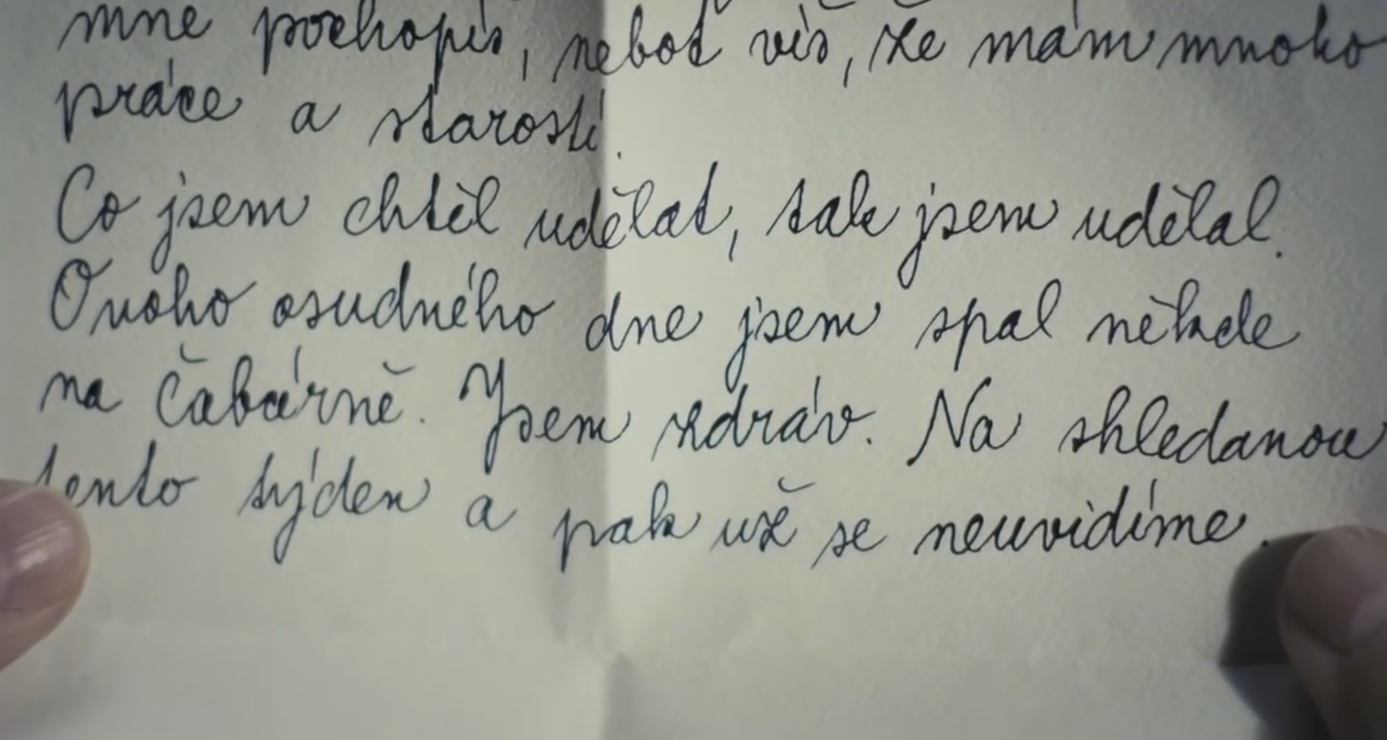 mne pochopíš, neboť víš, že mám mnoho
práce a starostí.
Co jsem chtěl udělat, tak jsem udělal.
Onoho osudného dne jsem spal někde
na Čabárně. Jsem zdráv. Na shledanou
tento týden a pak už se neuvidíme.